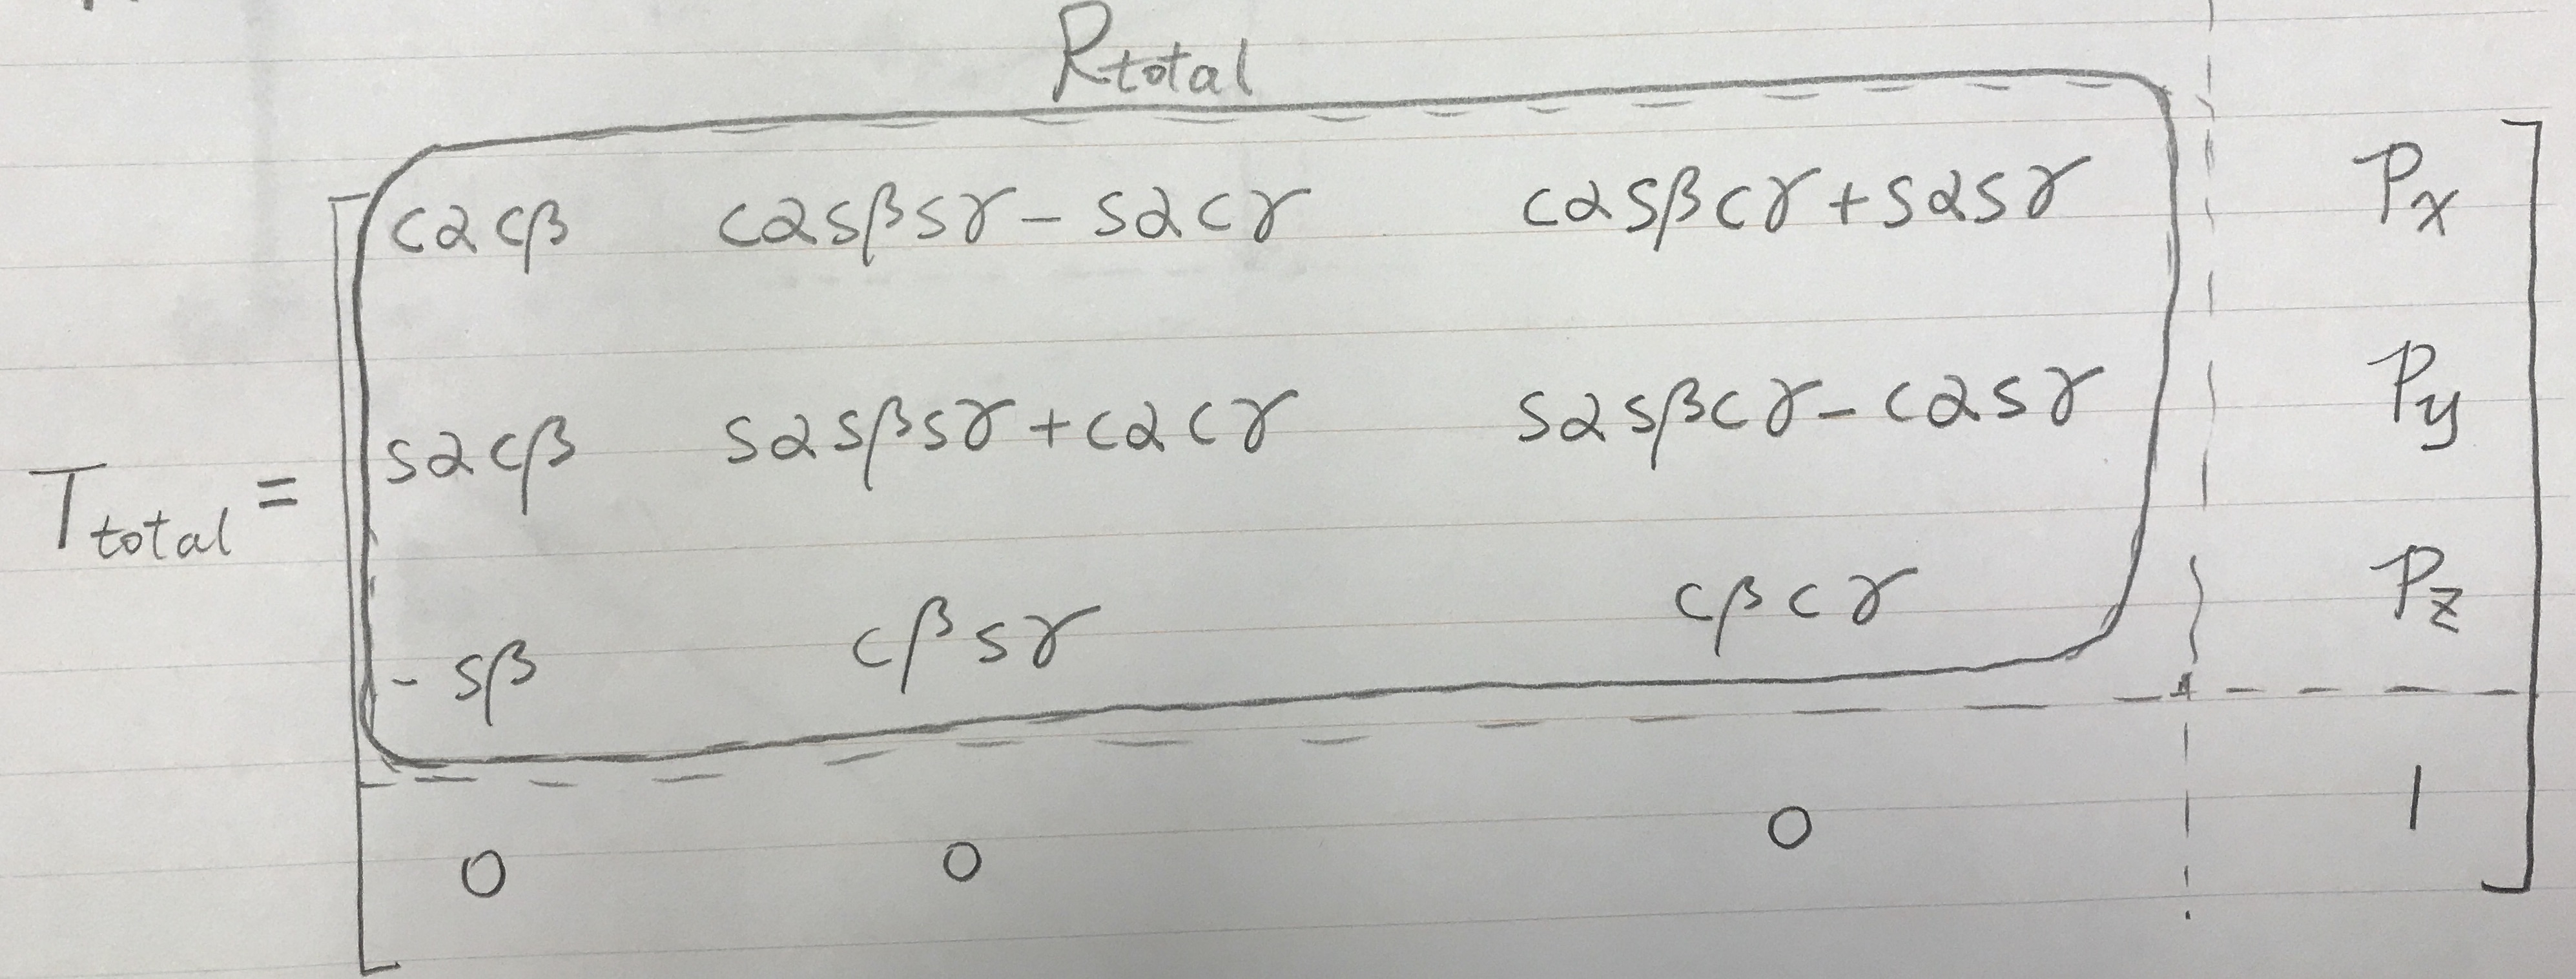 Rtotal
cαcβ cαsβsγ - sαcγ cαsβcγ + sαsγ Px
sαcβ sαsβsγ + cαcγ sαsβcγ - cαsγ Py
Ttotal =
-sβ cβsγ cβcγ Pz
0 0 0 1